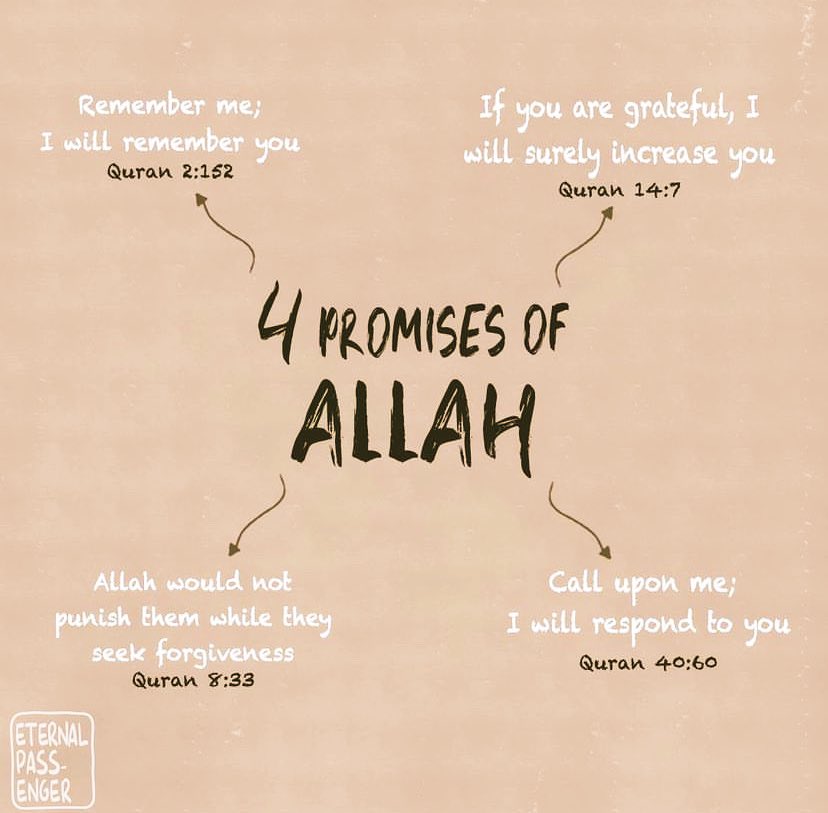 Remember me;
I will remember you
Quran 2:152
If you are grateful, I
will surely increase you
Quran 14:7
4 PROMISES OF
ALLAH
Allah would not
punish them while they
seek forgiveness
Quran 8:33
Call upon me;
I will respond to you
Quran 40:60
ETERNAL
PASS-
ENGER